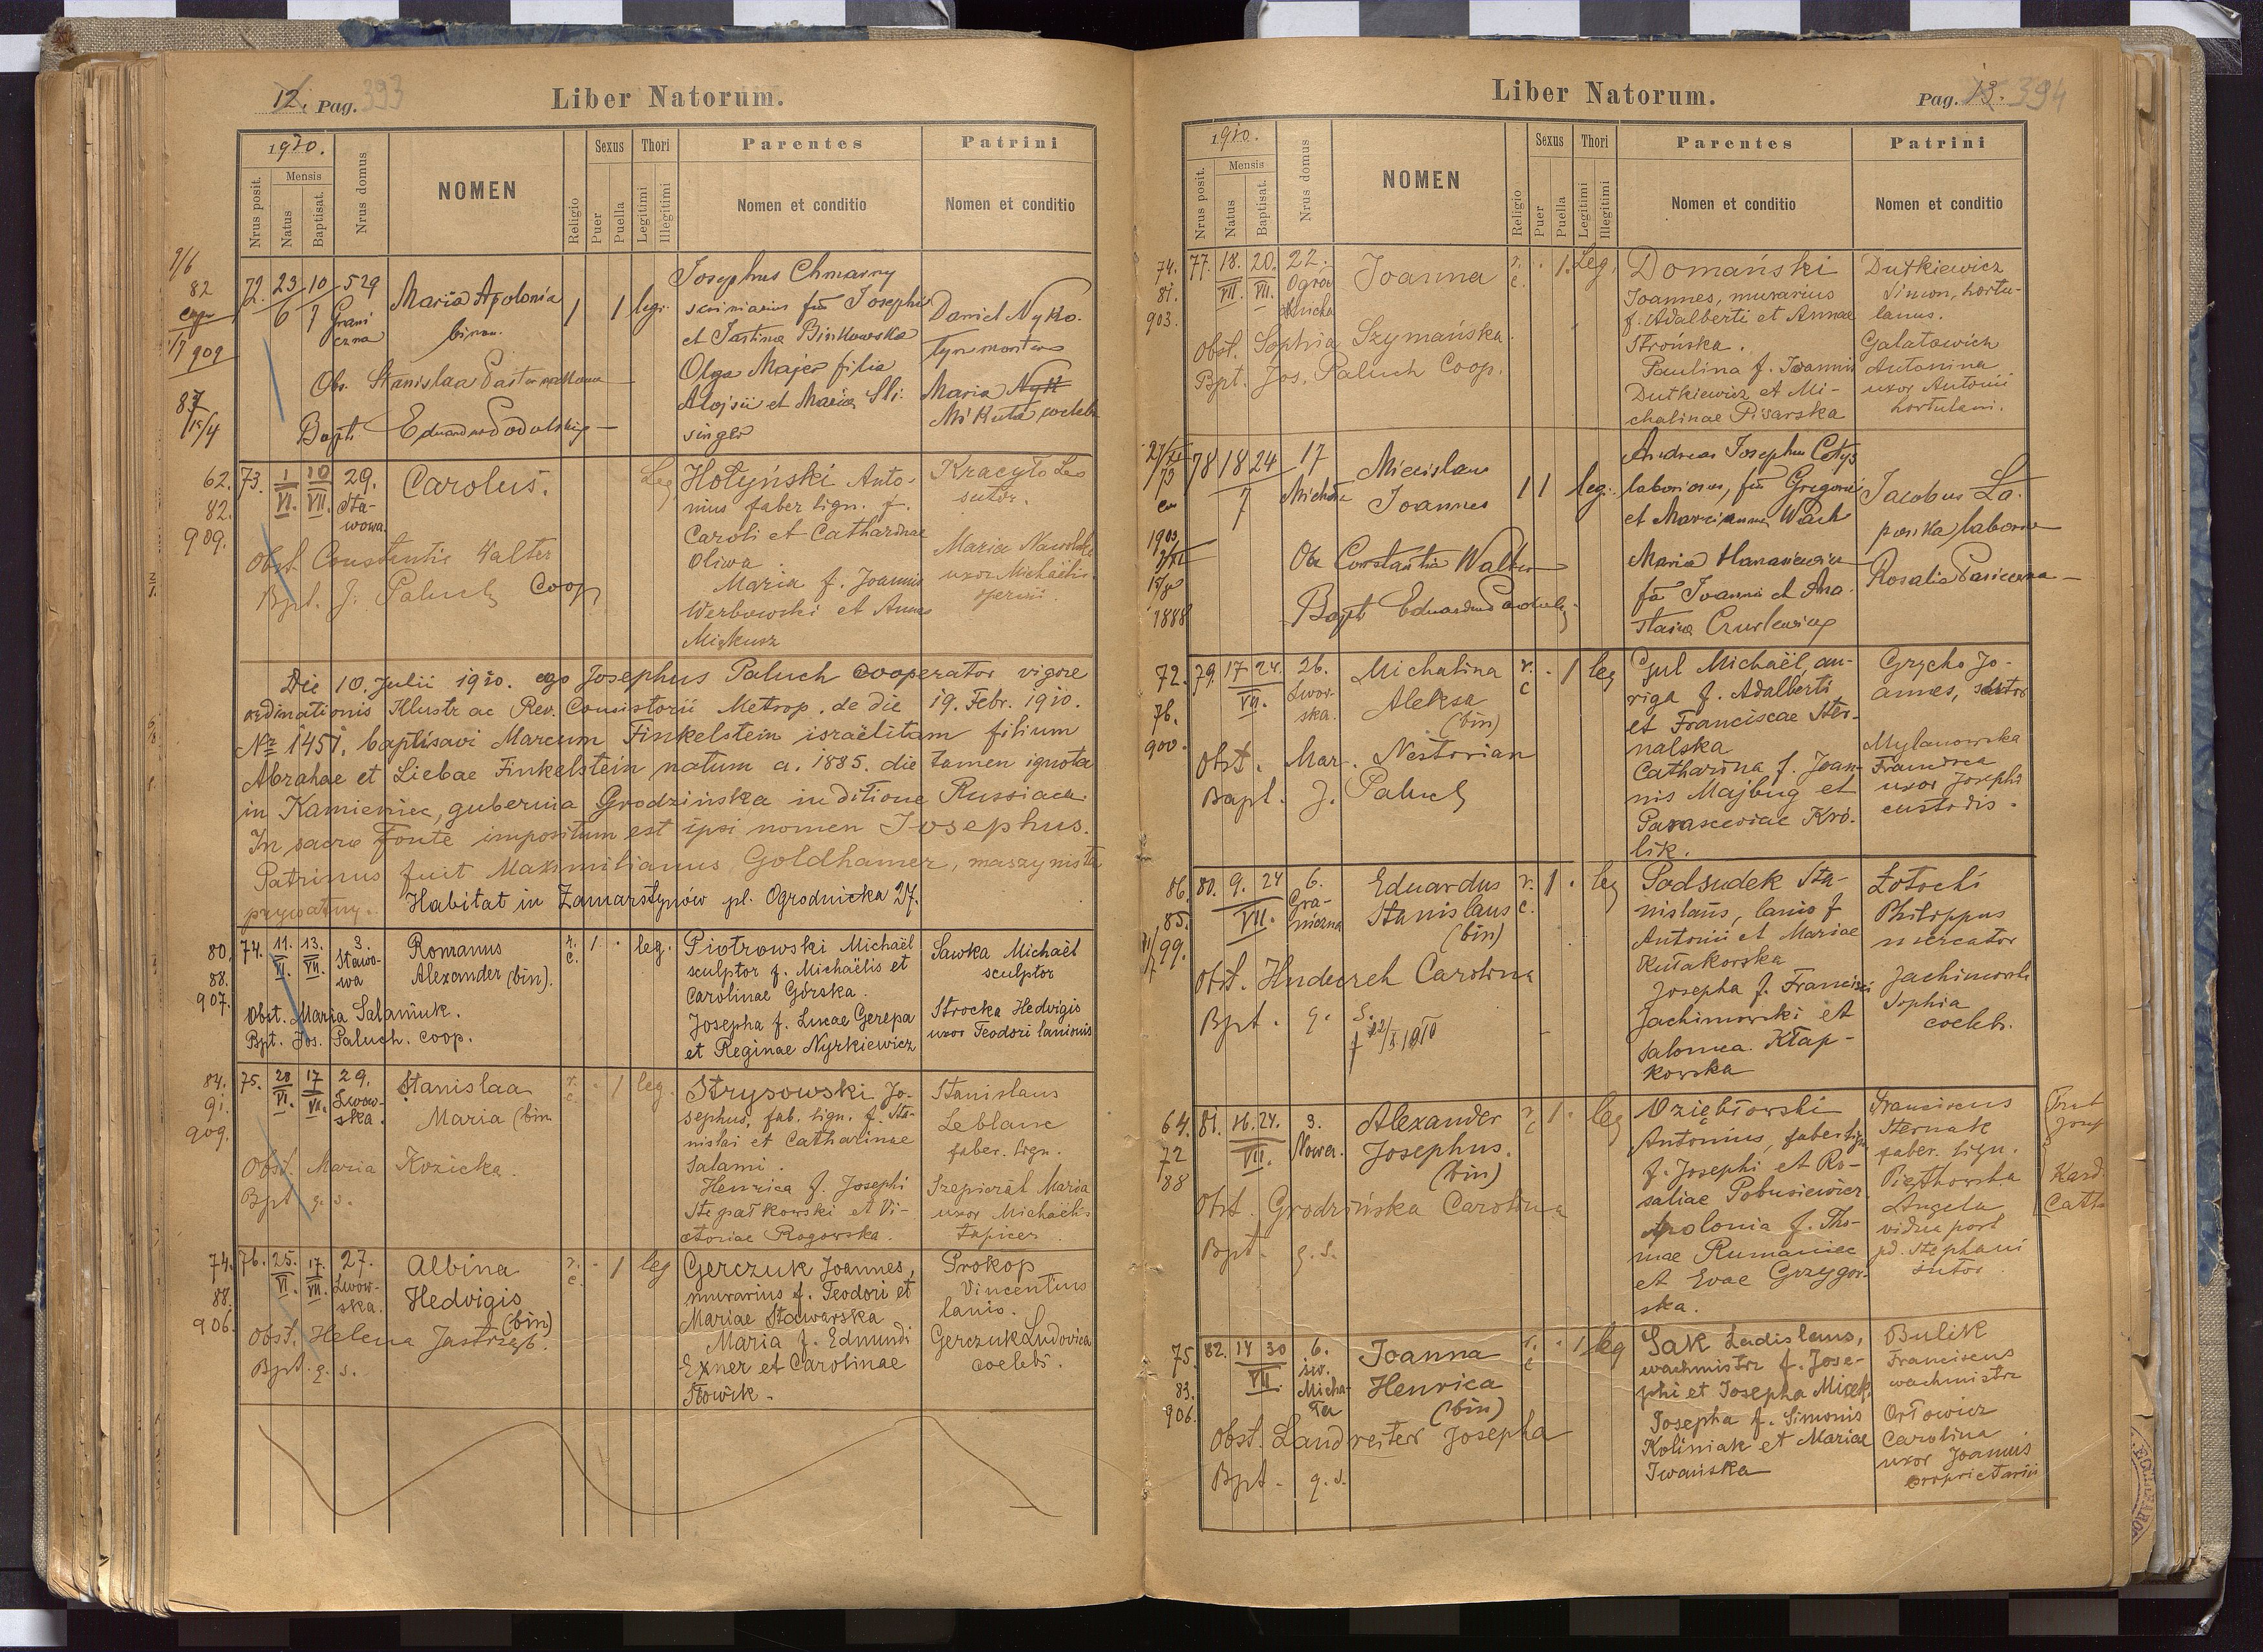 12. Pag. 393
Liber Natorum.
1910.
Nrus posit.
Mensis
Natus
Baptisat.
Nrus domus
NOMEN
Religio
Sexus
Puer
Puella
Thori
Legitimi
Illegitimi
Parentes
Nomen et conditio
Patrini
Nomen et conditio
72. 23/6 10/7 529
Grani
czna
Maria Apolonia
1 1 leg.
Josephus Chmarny
et Justina Binkowska
Olga Majer filia
Aloisii et Maria Sli-
singer
Daniel Nyko-
Maria Nyk
Mikuta coeleb
Obs. Stanislaa
Bapt. Eduardus Podolski
82
909
62.
82.
909.
73. 1/VI. 10/VII. 29.
Sta-
wowa.
Carolus.
Leg.
Hołyński Anto-
nius faber lign. f.
Caroli et Catharinae
Oliwa.
Maria f. Joannis
Werbowski et Annae
Mickusz
Kracyło Leo
sutor.
Maria
uxor Michaelis
Obst. Constantia Walter
Bpt. J. Paluch Coop
Die 10. Julii 1910. ego Josephus Paluch cooperator vigore
ordinationis Illustr ac Rev. Consistorii Metrop. de die 19. Febr. 1910.
Nr 1457. baptisavi Marcum Finkelstein israëlitam filium
Abrahae et Liebae Finkelstein natum a. 1885. die tamen ignota
in Kamieniec, gubernia Grodzińska in ditione Russiaca.
In sacro Fonte impositum est ipsi nomen Josephus.
Patrinus fuit Maximilianus Goldhamer, maszynista
prywatny. Habitat in Zamarstynów pl. Ogrodnicka 27.
80.
88.
907.
74. 11./VI. 13./VII. 3.
Stawo-
wa
Romanus
Alexander (bin).
r. c. 1 . leg.
Piotrowski Michaël
sculptor f. Michaëlis et
Carolinae Górska.
Josepha f. Lucae Gerepa
et Reginae Nyrkiewicz
Sawka Michaël
sculptor
Strocka Hedvigis
uxor Teodori lanionis
Obst. Maria Salamiuk.
Bpt. Jos. Paluch. coop.
84.
91.
909.
75. 28/VI. 17/VII. 29.
Lwow-
ska.
Stanislaa
Maria (bin
r. c. . 1 leg.
Strysowski Jo-
sephus, fab. lign. f. Sta-
nislai et Catharinae
Salami.
Henrica f. Josephi
Stepałkowski et Vi-
ctoriae Rogowska.
Stanislaus
Leblanc
faber. lign.
Szepierał Maria
uxor Michaelis
tapicer.
Obst. Maria Kozicka.
Bpt q. s.
74.
88.
906.
76. 25./VI. 17./VII. 27.
Lwow-
ska.
Albina
Hedvigis
(bin)
r. c. . 1 leg
Gerczuk Joannes,
murarius f. Teodori et
Mariae Stawarska
Maria f. Edmundi
Exner et Carolinae
Słowik.
Prokop
Vincentius
lanio.
Gerczuk Ludovica
coelebs.
Obst. Helena Jastrzęb.
Bpt. q. s.
Liber Natorum.
Pag. 13. 394
1910.
Nrus posit.
Mensis
Natus
Baptisat.
Nrus domus
NOMEN
Religio
Sexus
Puer
Puella
Thori
Legitimi
Illegitimi
Parentes
Nomen et conditio
Patrini
Nomen et conditio
74.
81.
903.
77. 18./VII. 20./VII. 22.
Ogrod
nicka
Joanna
r. c. . 1. Leg.
Domański
Joannes, murarius
f. Adalberti et Annae
Strońska.
Paulina f. Joannis
Dutkiewicz et Mi-
chalinae Pisarska
Dutkiewicz
Simon, hortu-
lanus.
Galatowich
Antonina
uxor Antonii
hortulani.
Obst. Sophia Szymańska.
Bpt. Jos. Paluch Coop.
1903
1888
78 18 24/7 17
Miecislaus
Joannes
1 1 leg.
Andreas Josephus
laboriosus, fil Gregorii
et Marcianna Wach
Maria Hanasiewicz
fa Joannis et Ana-
stasia
Jacobus La-
Rosalia
Ob Constantia Walter
Bapt Eduardus
72.
76.
900.
79. 17 24./VII. 26.
Lwow-
ska.
Michalina
Aleksa
(bin)
r. c . 1 leg
Gul Michaël, au-
riga f. Adalberti
et Franciscae Ster-
nalska
Catharina f. Joan-
nis Majbug et
Parasceviae Kró-
lik.
Grycko Jo-
annes, sutor
Mylanowska
Francisca
uxor Josephi
custodis.
Obst. Mar. Nestorian
Bapt. J. Paluch
86.
85.
99.
80. 9. 24/VII. 6.
Gra-
niczna
Eduardus
Stanislaus
(bin)
r. c. 1 . leg
Podsudek Sta-
nislaus, lanio f.
Antonii et Mariae
Kułakowska
Josepha f. Francisci
Jachimowski et
Salomea Kłap-
kowska
Łotocki
Philippus
mercator
Jachimowska
Sophia
coeleb.
Obst. Hudecreh Carolina
Bpt. q. s.
64.
72
88
81. 16. 24./VII. 3.
Nowa.
Alexander
Josephus.
(bin)
r. c 1 . leg
Wziębłowski
Antonius, faber lign
f. Josephi et Ro-
saliae Pobusiewicz
Apolonia f. Tho-
mae Rumaniec
et Evae Grzygor-
ska.
Franciscus
Sternak
faber. lign.
Angela
vidua post
pd. Stephani
sutor
Kard.
Cath
Obst. Grodzińska Carolina
Bpt. q. s.
75.
83.
906.
82. 14 30/VII. 6.
św.
Micha-
ła
Joanna
Henrica
(bin)
r. c . 1 leg
Sak Ladislaus,
wachmistrz f. Jose-
phi et Josepha Mizek.
Josepha f. Simonis
Koliniak et Mariae
Iwańska
Bulik
Franciscus
wachmistrz
Orłowicz
Carolina
uxor Joannis
proprietarii
Obst. Landreiter Josepha
Bpt. q. s.